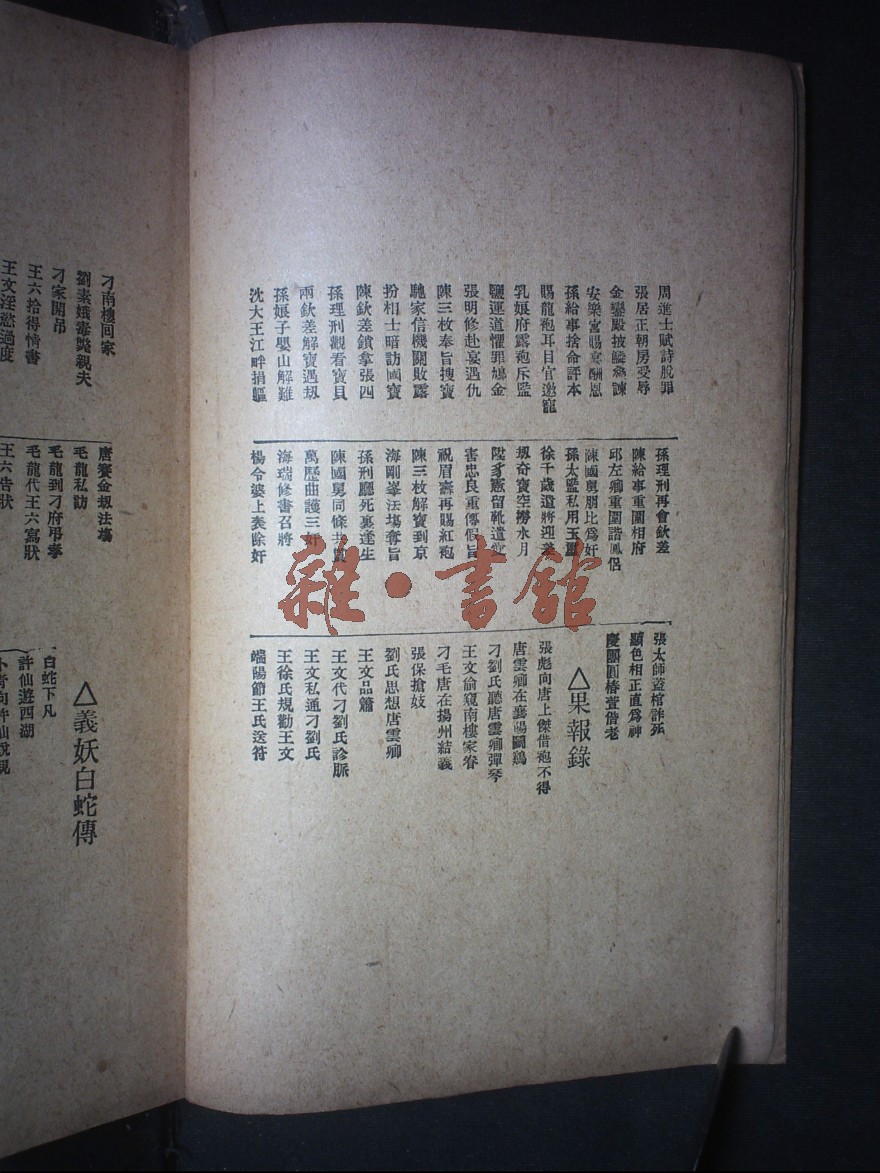 周進士賦詩脫罪
張居正朝房受辱
金鑾殿披鱗急諫
安樂宮賜宴酬恩
孫給事捨命評本
賜龍袍耳目官邀寵
乳娘府露袍斥監
鹽運道懼罪鳩金
張明修赴宴遇仇
陳三枚奉旨搜寶
馳家信機關敗露
扮相士暗訪國寶
陳欽差鎖拿張四
孫理刑觀看寶貝
兩欽差解寶遇刼
孫娘子嬰山解難
沈大王江畔捐軀
孫理刑再會欽差
陳給事重圍相府
邱左卿重圍諧鳳侶
陳國舅朋比爲奸
孫太監私用玉璽
徐千歲遺將迎差
刼奇寶空撈水月
憲留靴遺愛
害忠良重傳假旨
祝眉壽再賜紅袍
陳三枚解寶到京
海剛峯法塲奪旨
孫刑廳死裏逢生
陳國舅同條共
萬歷曲護三奸
海瑞修書召將
楊令婆上表除奸
張太師蓋棺詐死
顯色相正直爲神
慶團圓椿萱偕老
△果報錄
張彪向唐上傑借袍不得
唐雲卿在襄陽鬭鷄
刁劉氏聽唐雲卿彈琴
王文偷窺南樓家眷
刁毛唐在揚州結義
張保搶妓
劉氏思想唐雲卿
王文品簫
王文代刁劉氏診脈
王文私通刁劉氏
王徐氏規勸王文
端陽節王氏送符
雜·書館
刁南樓回家
劉素娥毒斃親夫
刁家開吊
王六拾得情書
王文淫慾過度
唐賽金刼法塲
毛龍私訪
毛龍到刁府弔孝
毛龍代王六寫狀
王六告狀
△義妖白蛇傳
白蛇下凡
許仙遊西湖
小青向許仙說親